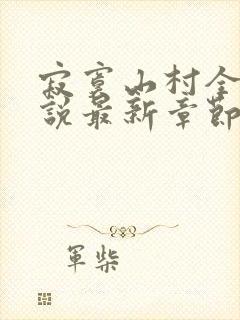 寂寞山村全
說最新章節
軍柴